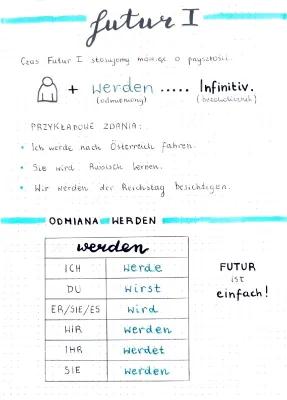 futur I
Czas Futur I stosujemy mówiąc o przyszłości.
+ werden ..... Infinitiv.
(odmieniony) (bezokolicznik)
PRZYKŁADOWE ZDANIA:
• Ich werde nach Österreich fahren.
• Sie wird Russisch lernen.
• Wir werden der Reichstag besichtigen.
ODMIANA WERDEN
werden
ICH werde
DU wirst
ER/SIE/ES wird
WIR werden
IHR werdet
SIE werden
FUTUR
ist
einfach!